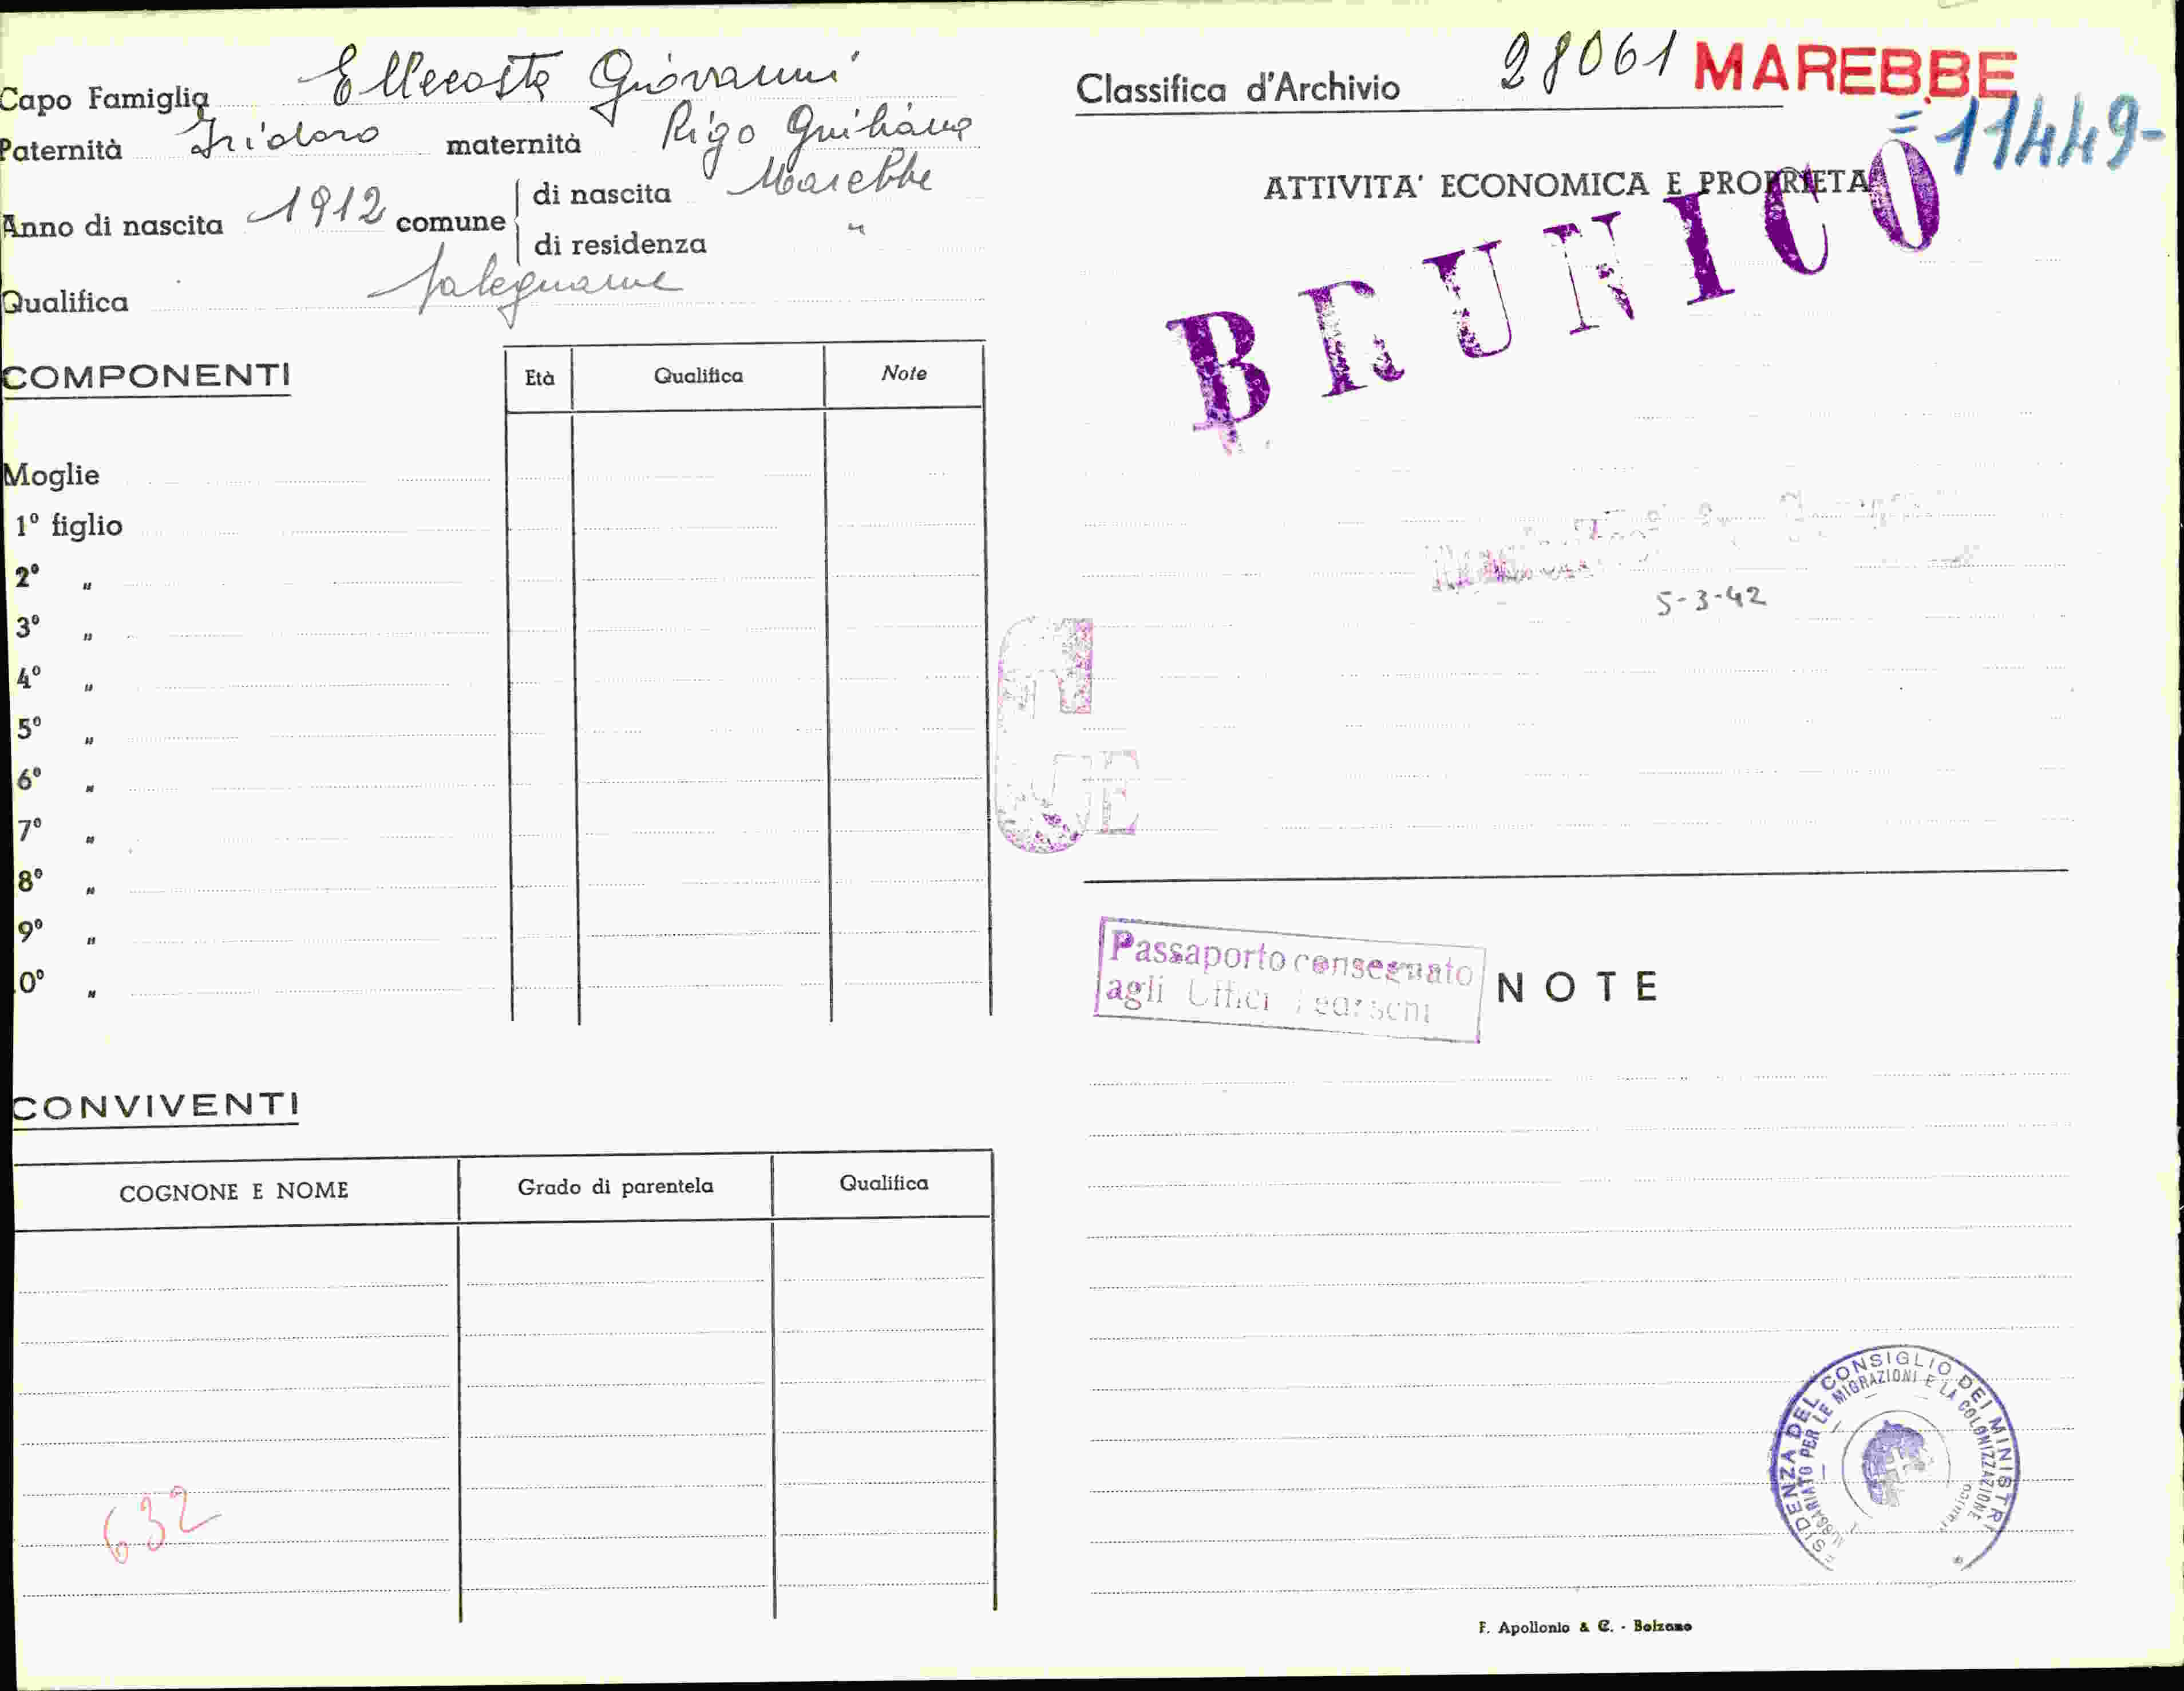 Capo Famiglia Ellecosta Giovanni
Paternità Isidoro maternità Rigo Giuliana
Anno di nascita 1912 comune di nascita Marebbe
di residenza "
Qualifica falegname
COMPONENTI
Età Qualifica Note
Moglie
1º figlio
2º "
3º "
4º "
5º "
6º "
7º "
8º "
9º "
0º "
CONVIVENTI
COGNONE E NOME Grado di parentela Qualifica
632
Classifica d'Archivio 28061 MAREBBE
=11449-
ATTIVITA' ECONOMICA E PROPRIETA'
BRUNICO
5-3-42
Passaporto consegnato
agli Uffici Tedeschi
NOTE
SIDENZA DEL CONSIGLIO DEI MINISTRI
MISSARIATO PER LE MIGRAZIONI E LA COLONIZZAZIONE
F. Apollonio & C. - Bolzano